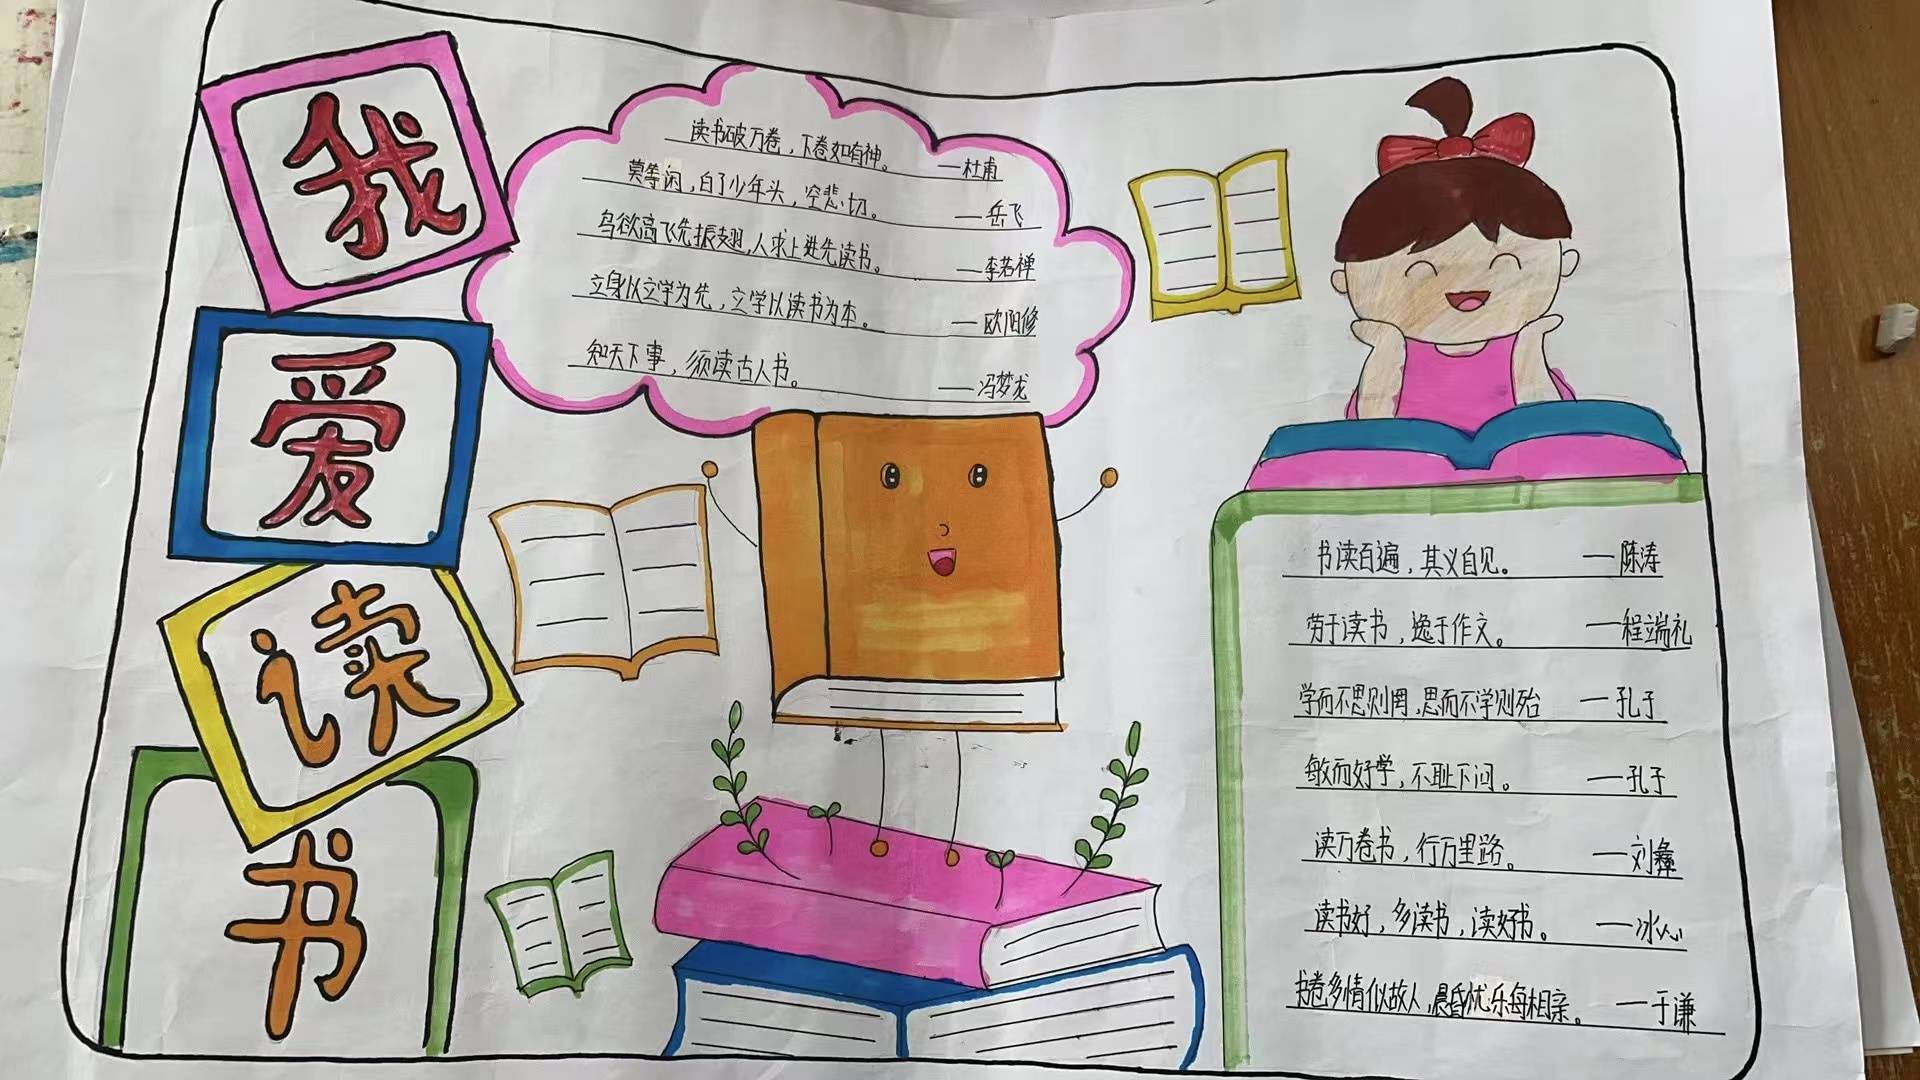 我
爱
读
书
读书破万卷，下卷如有神。 —杜甫
莫等闲，白了少年头，空悲切。 —岳飞
鸟欲高飞先振翅，人求上进先读书。 —李若禅
立身以立学为先，立学以读书为本。 —欧阳修
知天下事，须读古人书。 —冯梦龙
书读百遍，其义自见。 —陈涛
劳于读书，逸于作文。 —程端礼
学而不思则罔，思而不学则殆 —孔子
敏而好学，不耻下问。 —孔子
读万卷书，行万里路。 —刘彝
读书好，多读书，读好书。 —冰心
书卷多情似故人，晨昏忧乐每相亲。 —于谦